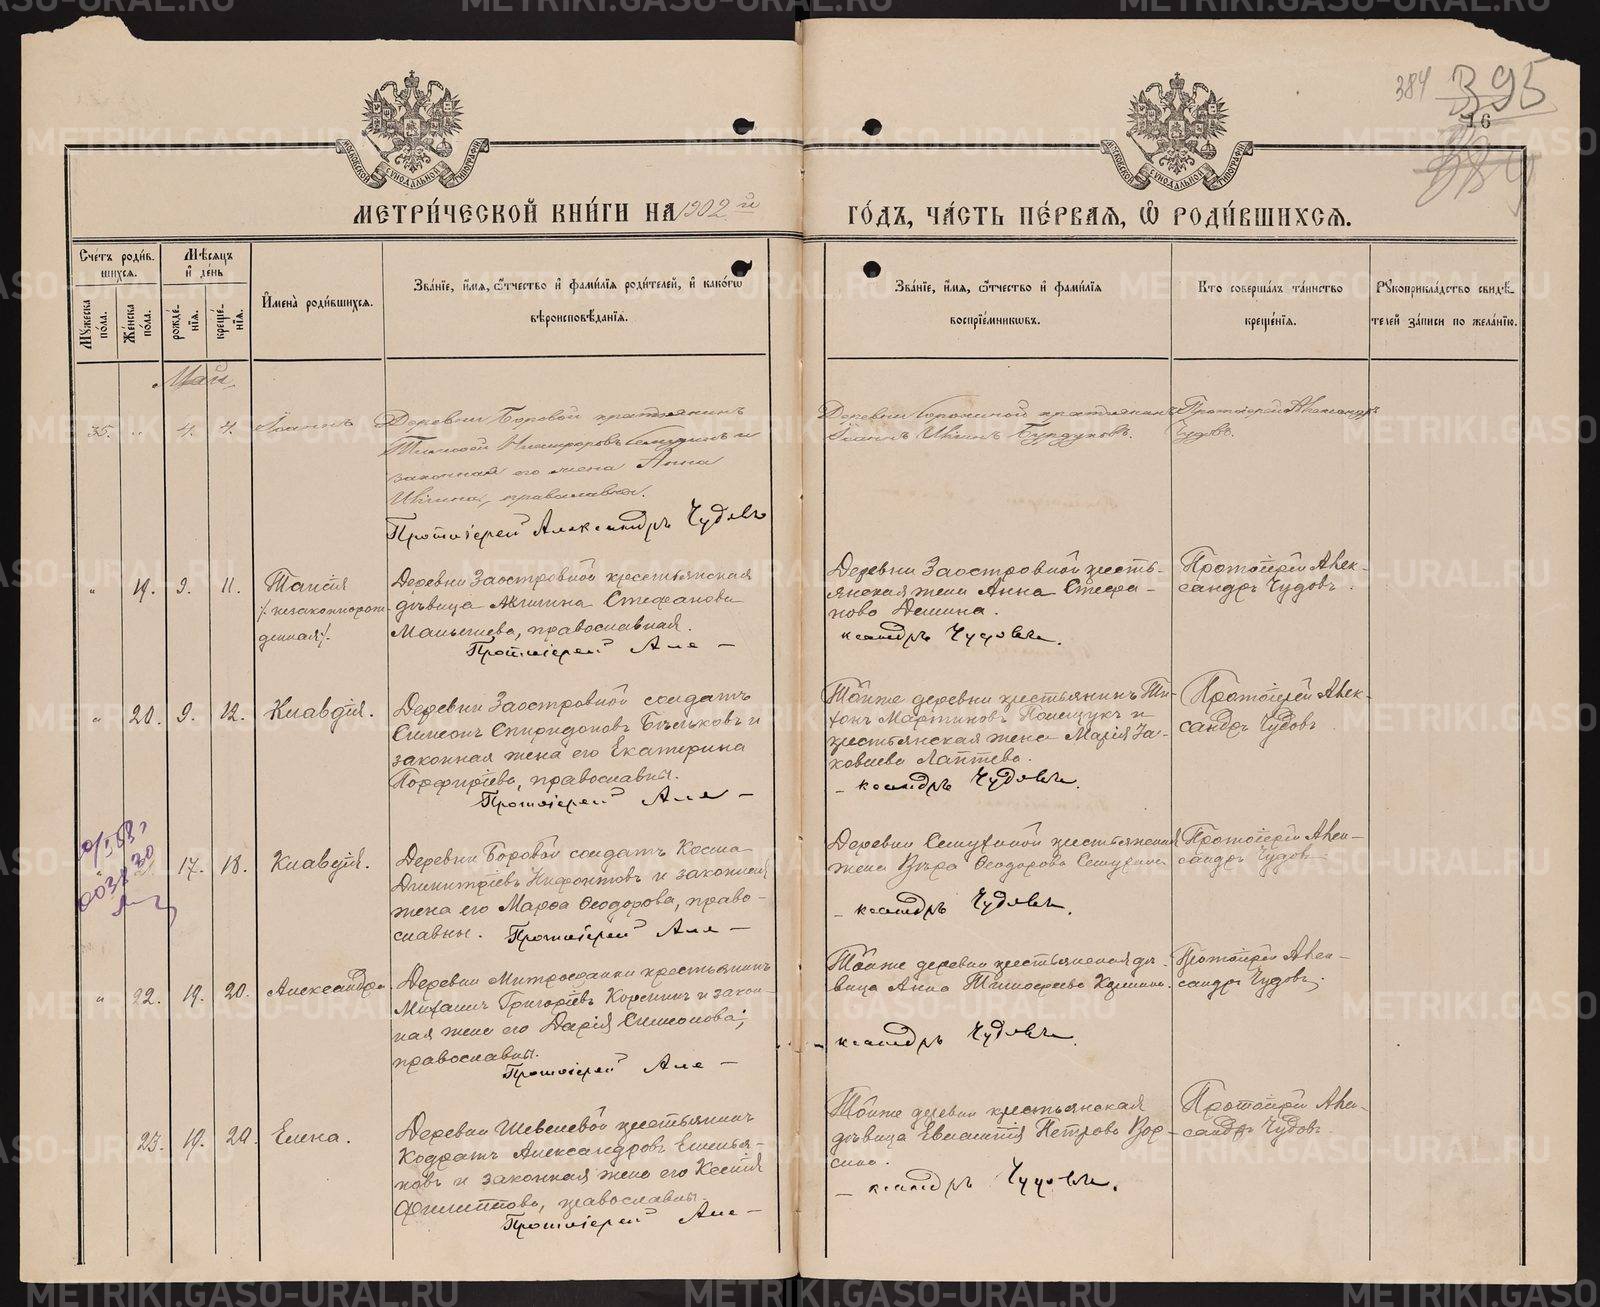 384 395
16
384
МОСКОВСКОЙ СѴНОДАЛЬНОЙ ТИПОГРАФІИ
МОСКОВСКОЙ СѴНОДАЛЬНОЙ ТИПОГРАФІИ
МЕТРИ́ЧЕСКОЙ КНИ́ГИ НА 1902 й ГО́ДЪ, ЧА́СТЬ ПЕ́РВАЯ, Ѡ҆ РОДИ́ВШИХСЯ.
Сче́тъ роди́вшихся.
Му́жеска по́ла.
Же́нска по́ла.
Мѣ́сяцъ и҆ де́нь
рожде́нїя.
креще́нїя.
И҆мена̀ роди́вшихся.
Зва́нїе, и҆́мя, ѻ҆́тчество и҆ фами́лїя роди́телей, и҆ како́гѡ вѣроисповѣ́данїя.
Зва́нїе, и҆́мя, ѻ҆́тчество и҆ фами́лїя воспрїе́мникѡвъ.
Кто̀ соверша́лъ та́инство креще́нїя.
Рꙋкоприкла́дство свидѣ́телей за́писи по жела́нїю.
Май
35. „ 4. 4. Іоаннъ
Деревни Боровой крестьянинъ
законная его жена Анна
православны.
Протоіерей Александръ Чудовъ
крестьянинъ
Іоаннъ Бурдуковъ.
Протоіерей Александръ
Чудовъ.
„ 19. 9. 11. Таисія
/: незаконнорож-
денная :/.
Деревни Заостровной крестьянская
дѣвица Акилина Стефанова
Малышева, православная.
Протоіерей Але —
Деревни Заостровной кресть-
янская жена Анна Стефа-
нова Демина.
ксандръ Чудовъ.
Протоіерей Алек-
сандръ Чудовъ.
„ 20. 9. 12. Клавдія.
Деревни Заостровной солдатъ
Симеонъ Спиридоновъ Бѣльковъ и
законная жена его Екатерина
Порфиріева, православны.
Протоіерей Але —
Тойже деревни крестьянинъ Ти-
хонъ Мартиновъ и
крестьянская жена Марія За-
Лаптева.
— ксандръ Чудовъ.
Протоіерей Алек-
сандръ Чудовъ
17. 18. Клавдія.
Деревни Боровой солдатъ Косма
Димитріевъ Нифонтовъ и законная
жена его Марѳа Ѳеодорова, право-
славны. Протоіерей Але —
Деревни Семухиной крестьянская
жена Вѣра Ѳеодорова Семухина
— ксандръ Чудовъ.
Протоіерей Алек-
сандръ Чудовъ
„ 22. 19. 20. Александра
Деревни крестьянинъ
Михаилъ Григоріевъ и закон-
ная жена его Дарія Симонова,
православны.
Протоіерей Але —
Тойже деревни крестьянская дѣ-
вица Анна Тимофеева
ксандръ Чудовъ.
Протоіерей Алек-
сандръ Чудовъ.
23. 19. 20. Елена.
Деревни Шевелевой крестьянинъ
Кодратъ Александровъ Емелья-
новъ и законная жена его Ксенія
Филиппова, православны.
Протоіерей Але —
Тойже деревни крестьянская
дѣвица Евлампія Петрова Вор-
сина.
— ксандръ Чудовъ.
Протоіерей Алек-
сандръ Чудовъ.
METRIKI.GASO-URAL.RU